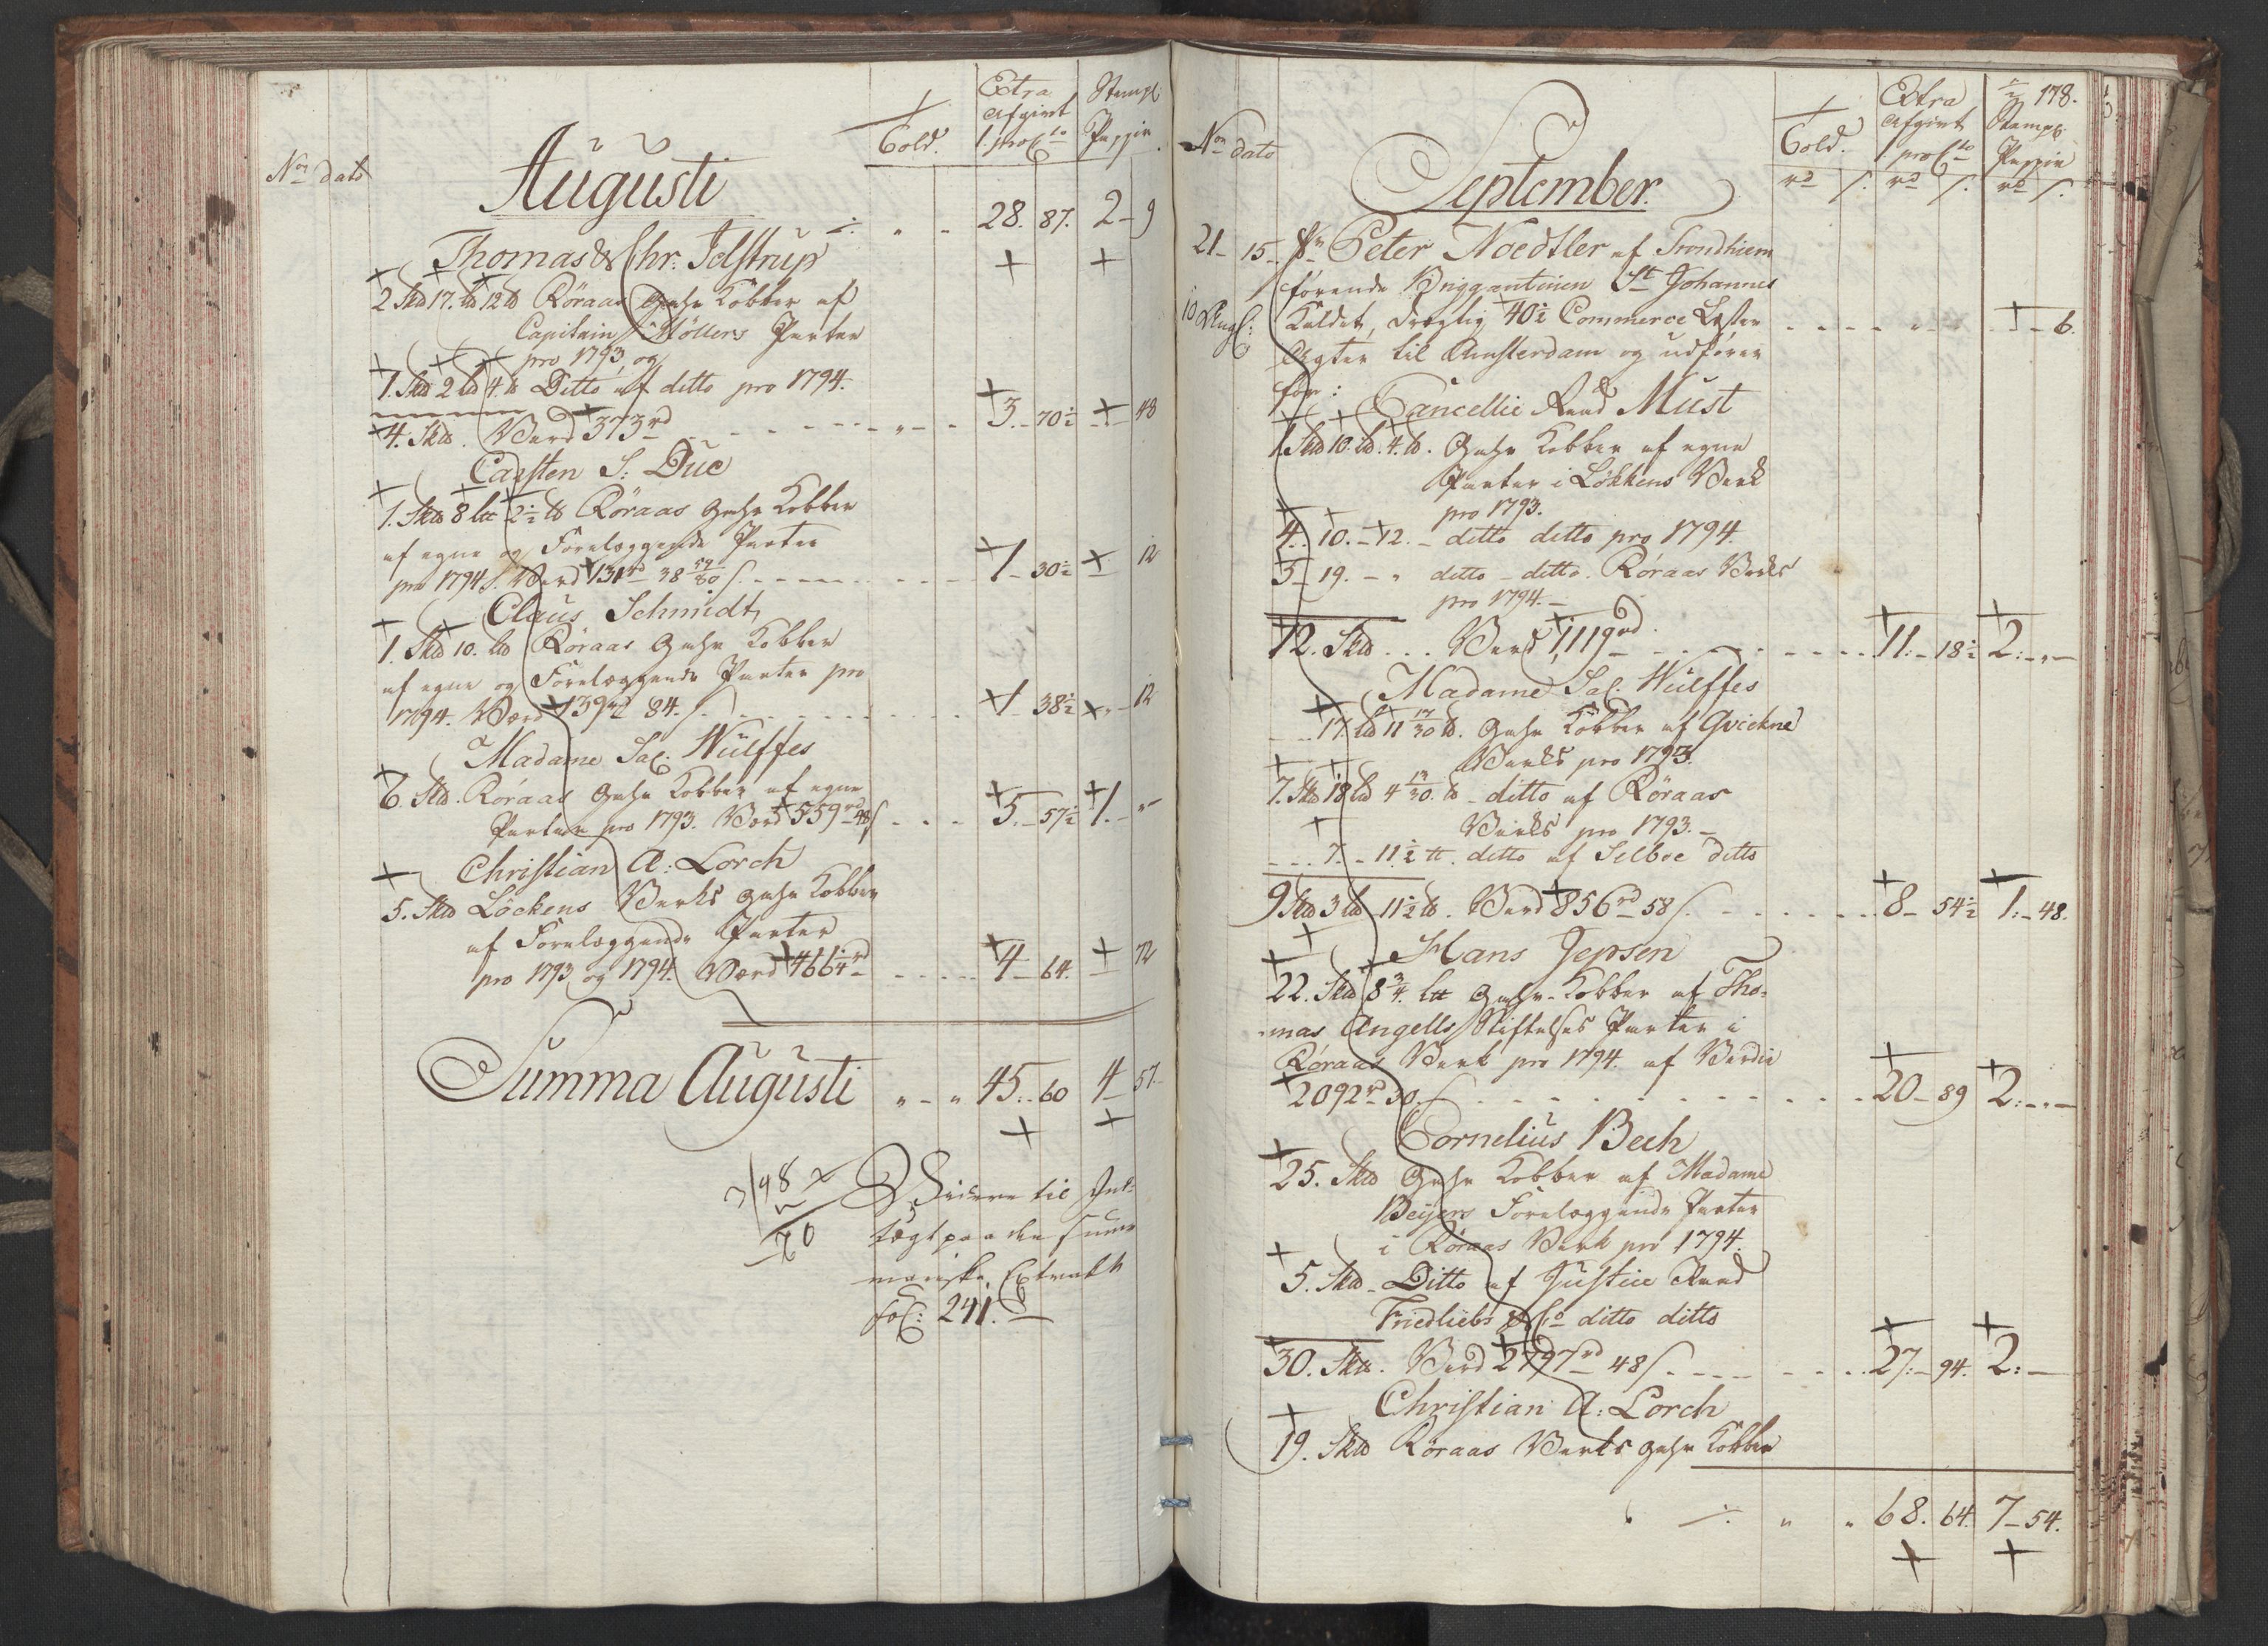 Extra Stempl:
Told. Afgivt Pappir
1. pro Cto
No dato
Augusti
28. 87. 2 - 9
Thomas & Chr: Jelstrup
2 Sk℔ 17. L℔ 12 ℔ Röraas Gahr Kobber af
Capitain Möllers Parter
pro 1793, og
1. Sk℔ 2 L℔ 4. ℔ Ditto af ditto pro 1794.
4. Sk℔. Værd 373 rd 3. - 70½ - 48
Carsten S: Due
1. Sk℔ 8 L℔ 2½ ℔ Röraas Gahr Kobber
af egne og Forelæggende Parter
pro 1794. Værd 131 rd 38 S. 1 - 30½ - 12
Claus Schmidt
1. Sk℔ 10. L℔ Röraas Gahr Kobber
af egne og Forelæggende Parter pro
1794. Værd 139 rd 84. S. 1 - 38½ - 12
Madame Sal. Wulffes
6. Sk℔. Röraas Gahr Kobber af egne
Parter pro 1793. Værd 559 rd 48 S 5. - 57½ 1. - "
Christian A: Lorch
5. Sk℔ Löckens Verks Gahr Kobber
af Forelæggende Parter
pro 1793 og 1794. Værd 466¼ rd 4 - 64. - 72
Summa Augusti " - " 45. - 60 4 - 57.
Videre til Ind-
tægt paa den Sum-
mariske Extrakt
fol: 241.
178.
Extra
Told. Afgivt Stempl:
1 pro Cto Pappir
No dato
rd S. rd S. rd S.
September.
21 - 15 - Sr. Peter Noedtler af Trondhiem
förende Briggantinen St Johannes
10 Kaldet, drægtig 40½ Commerce Læster - 6.
Agter til Amsterdam og udförer
for:
Cancellie Raad Must
1 Sk℔ 10. L℔. 4. ℔. Gahr Kobber af egne
Parter i Lökkens Verk
pro 1793.
4. - 10. - 12. - ditto ditto pro 1794.
5 - 19. - " ditto - ditto. Röraas Verks
pro 1794. -
12. Sk℔ . . . Værd 1,119 rd 11. - 18½ 2: - " -
Madame Sal. Wulffes
17. L℔ 11 17/30 ℔. Gahr Kobber af Qvickne
Verks pro 1793.
7. Sk℔ 18 L℔ 4 13/30. ℔ - ditto af Röraas
Verks pro 1793. -
7. - 11½ ℔. ditto af Selboe ditto
9 Sk℔ 3 L℔ 11½ ℔. Værd 856 rd 58 S. 8 - 54½ 1. - 48.
Hans Jepsen
22. Sk℔ 8¾. L℔ Gahr-Kobber af Tho-
-mas Angells Stiftelses Parter i
Röraas Verk pro 1794. af Værdie
2092 rd 30. S 20 - 89 2: - " -
Cornelius Bech
25. Sk℔ Gahr Kobber af Madame
Beijers Forelæggende Parter
i Röraas Verk pro 1794.
5. Sk℔ - Ditto af Justice Raad
Friedliebs & Co ditto ditto
30. Sk℔. Værd 2797 rd 48 S. 27: - 94. 2: -
Christian A: Lorch
19. Sk℔ Röraas Verks Gahr Kobber
" " 68. 64. 7 - 54.